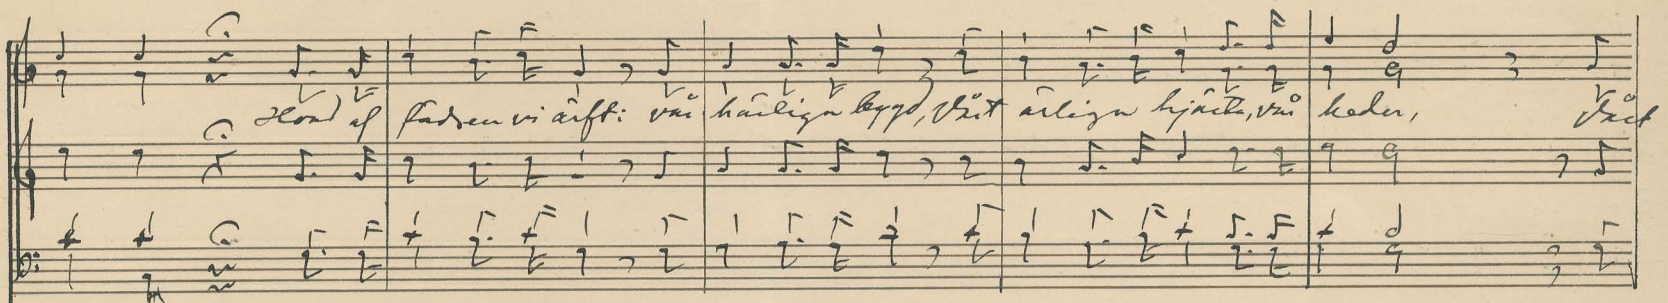 Hvad af fädren vi ärft: vår härliga bygd, Vårt ärliga hjärta, vår heder, Vårt